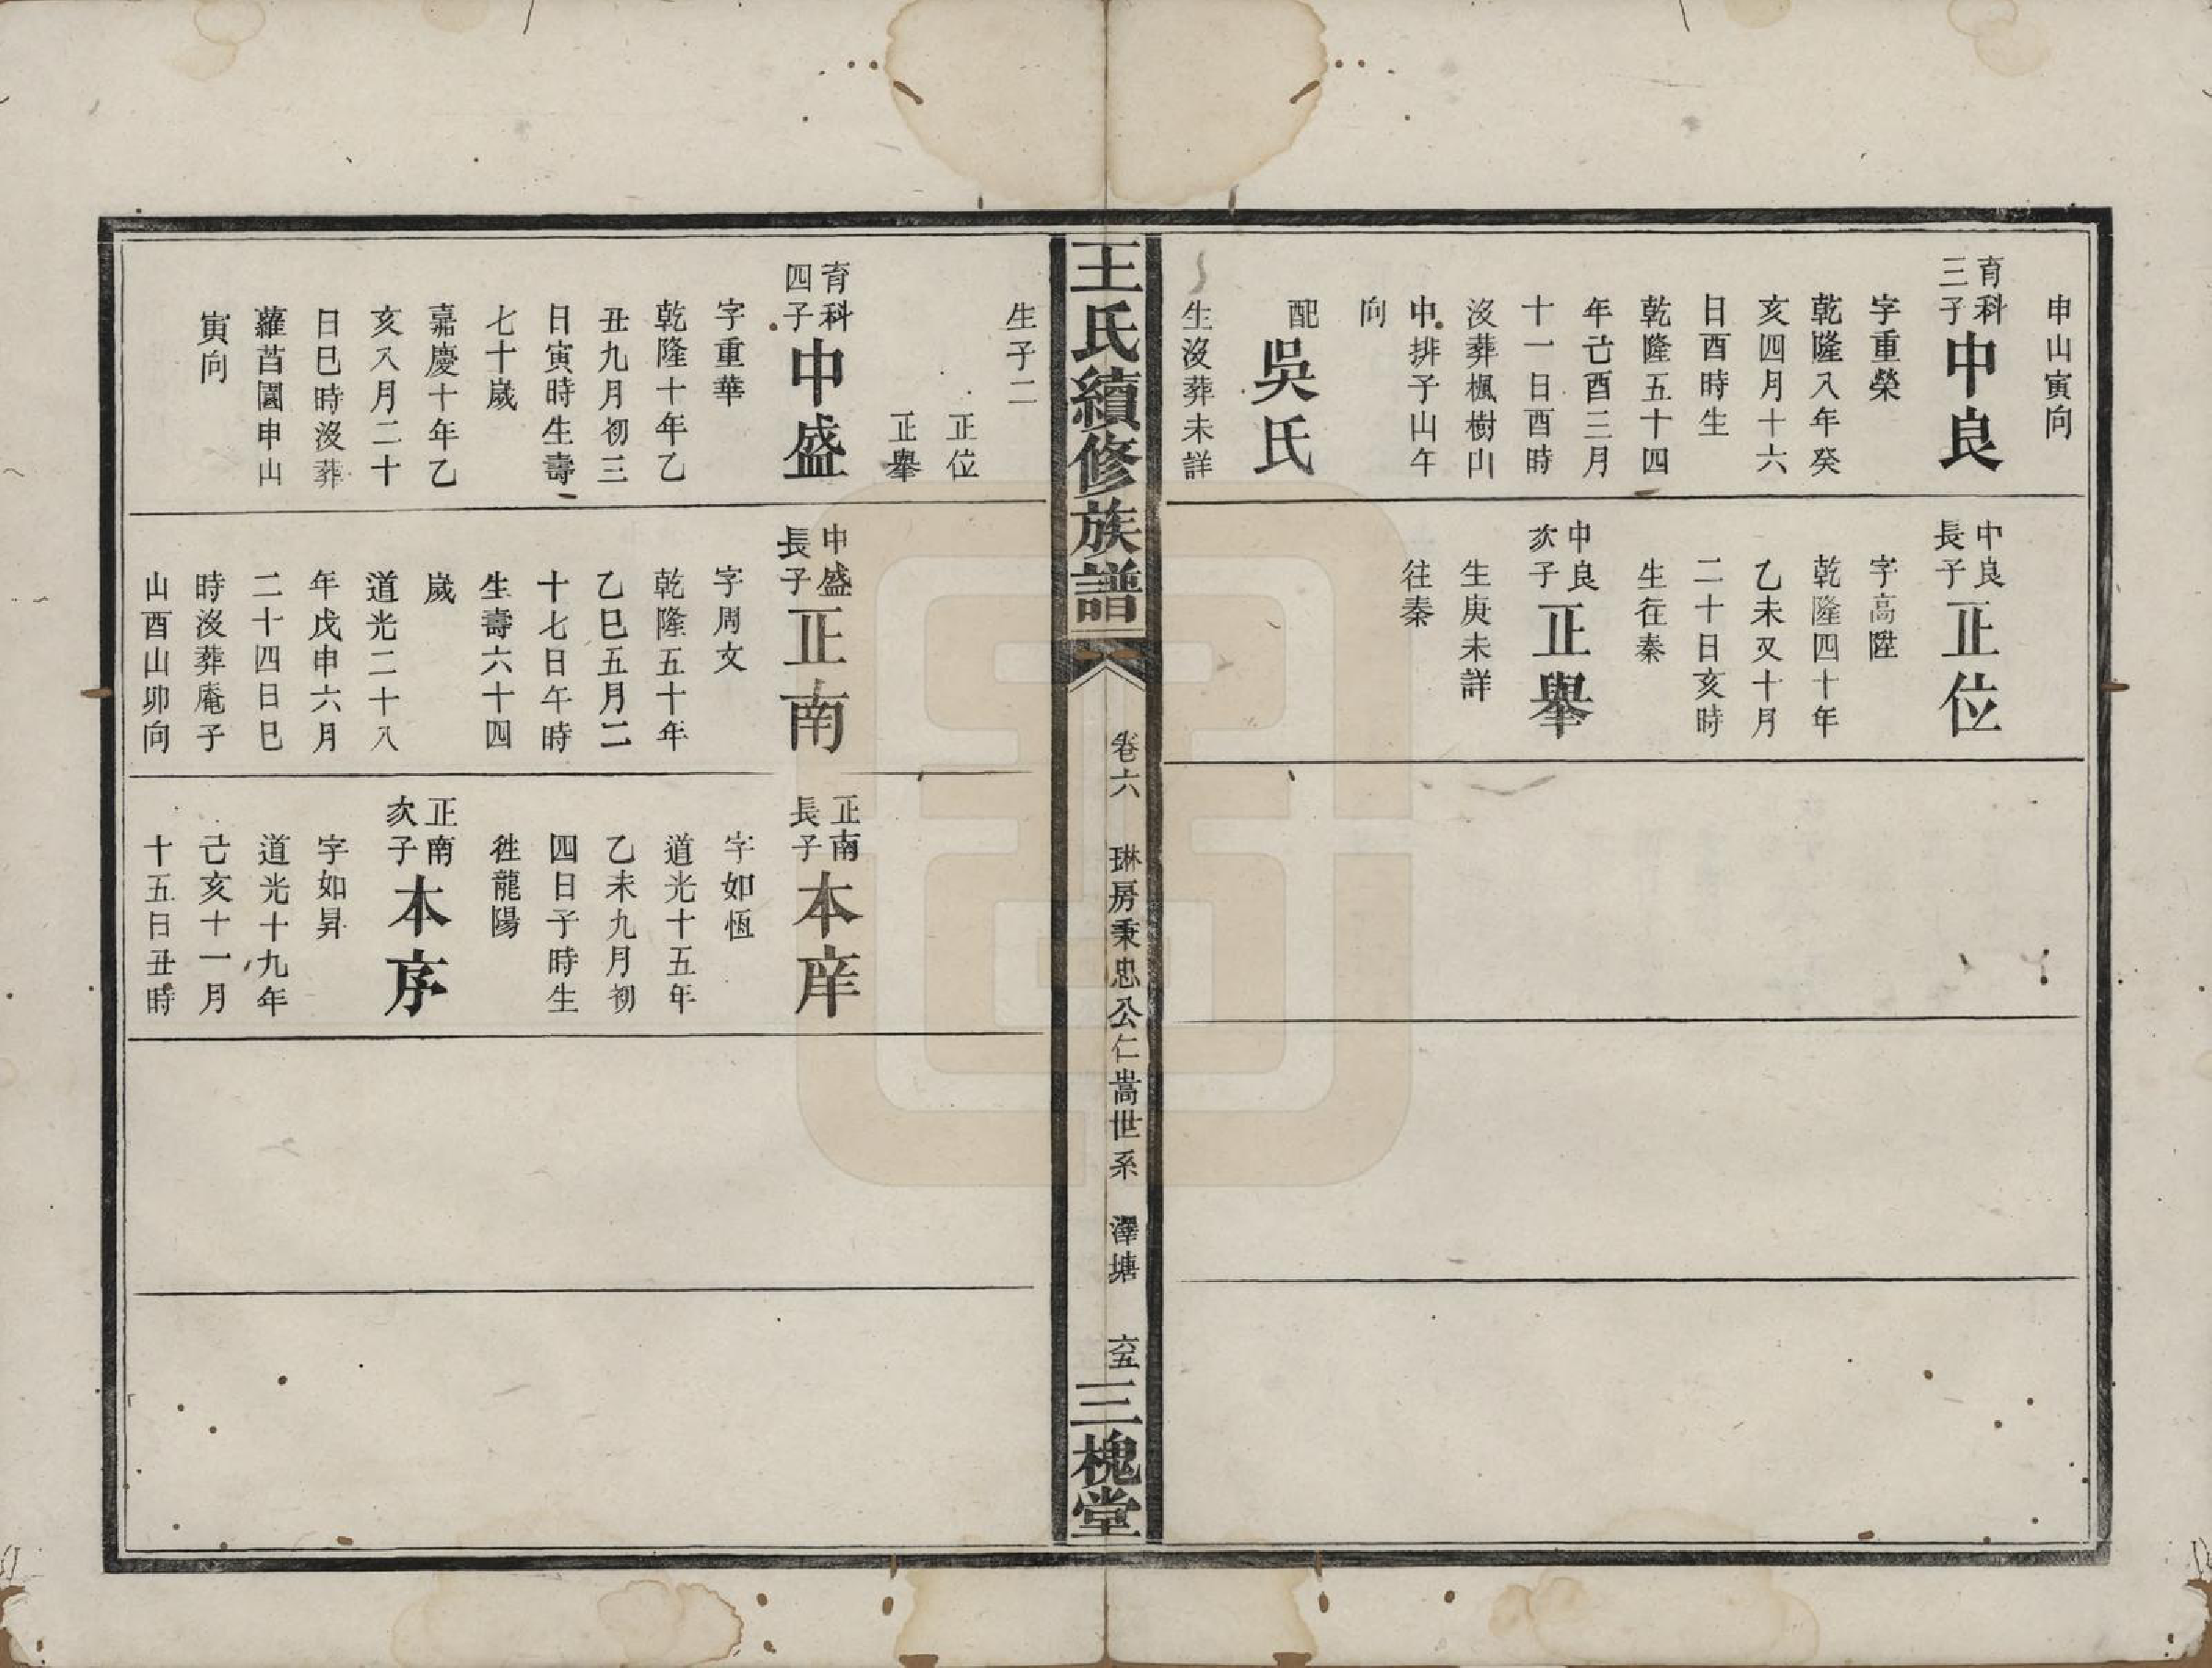 申山寅向
育科
三子
中良
字重榮
乾隆八年癸
亥四月十六
日酉時生
乾隆五十四
年己酉三月
十一日酉時
沒葬楓樹山
中排子山午
向
配
吳氏
生沒葬未詳
中良
長子
正位
字高陞
乾隆四十年
乙未又十月
二十日亥時
生往秦
中良
次子
正舉
生庚未詳
往秦
王氏續修族譜
卷六
琳房秉忠公仁嵩世系
澤塘
六五
三槐堂
生子二
正位
正舉
育科
四子
中盛
字重華
乾隆十年乙
丑九月初三
日寅時生壽
七十歲
嘉慶十年乙
亥八月二十
日巳時沒葬
蘿莒園申山
寅向
中盛
長子
正南
字周文
乾隆五十年
乙巳五月二
十七日午時
生壽六十四
歲
道光二十八
年戊申六月
二十四日巳
時沒葬庵子
山酉山卯向
正南
長子
本庠
字如恆
道光十五年
乙未九月初
四日子時生
徃龍陽
正南
次子
本序
字如昇
道光十九年
己亥十一月
十五日丑時